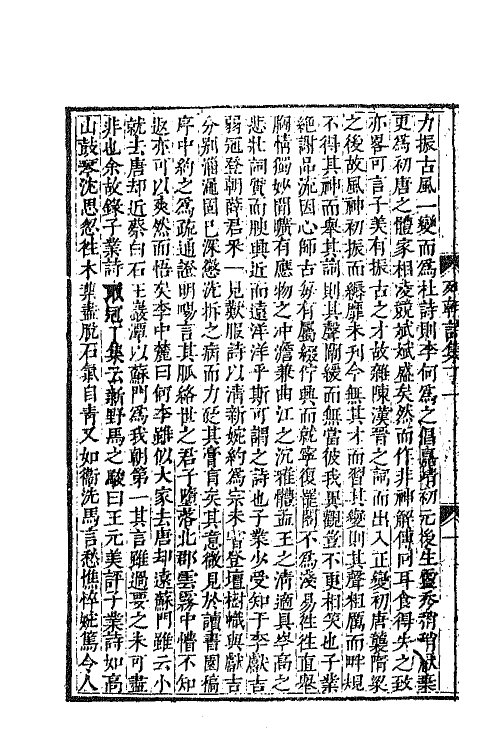 力振古風一變而爲杜詩則李何爲之倡嘉靖初元後生靈秀稍稍厭棄
更爲初唐之體家相凌競斌斌盛矣然而作非神解傳同耳食得失之致
亦畧可言子美有振古之才故雜陳漢晉之詞而出入正變初唐襲隋梁
之後故風神初振而縟靡未刊今無其才而習其變則其聲粗厲而畔規
不得其神而舉其詞則其聲闡緩而無當彼我異觀豈不更相笑也子業
絶謝品流因心師古每有屬綴佇興而就寧復罷閣不爲淺易往往直舉
胸情獨妙閒曠有應物之冲澹兼曲江之沉雅體孟王之清適具岑高之
悲壯詞質而腴興近而遠洋洋乎斯可謂之詩也子業少受知于李獻吉
弱冠登朝薛君采一見歎服詩以清新婉約爲宗未嘗登壇樹幟與獻吉
分别淄澠固已深懲洗拆之病而力砭其膏肓矣其意微見於讀書園稿
序中約之爲疏通證明暘言其脈絡世之君子墮落北郡雲霧中懵不知
返亦可以爽然而悟矣李中麓曰何李雖似大家去唐却遠蘇門雖云小
就去唐却近蔡白石王巖潭以蘇門爲我朝第一其言雖過要之未可盡
非也余故錄子業詩冠丁集云新野馬之駿曰王元美評子業詩如高
山鼓琴沈思忽往木葉盡脱石氣自青又如衞洗馬言愁憔悴婉篤令人
列朝詩集丁一
一